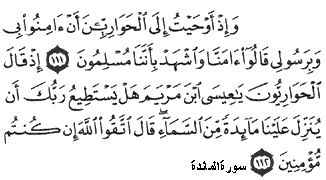 وَإِذْ أَوْحَيْتُ إِلَى ٱلْحَوَارِيِّـۧنَ أَنْ ءَامِنُوا۟ بِى
وَبِرَسُولِى قَالُوٓا۟ ءَامَنَّا وَٱشْهَدْ بِأَنَّنَا مُسْلِمُونَ ١١١ إِذْ قَالَ
ٱلْحَوَارِيُّونَ يَـٰعِيسَى ٱبْنَ مَرْيَمَ هَلْ يَسْتَطِيعُ رَبُّكَ أَن
يُنَزِّلَ عَلَيْنَا مَآئِدَةً مِّنَ ٱلسَّمَآءِ ۖ قَالَ ٱتَّقُوا۟ ٱللَّهَ إِن كُنتُم
مُّؤْمِنِينَ ١١٢ سورة المائدة